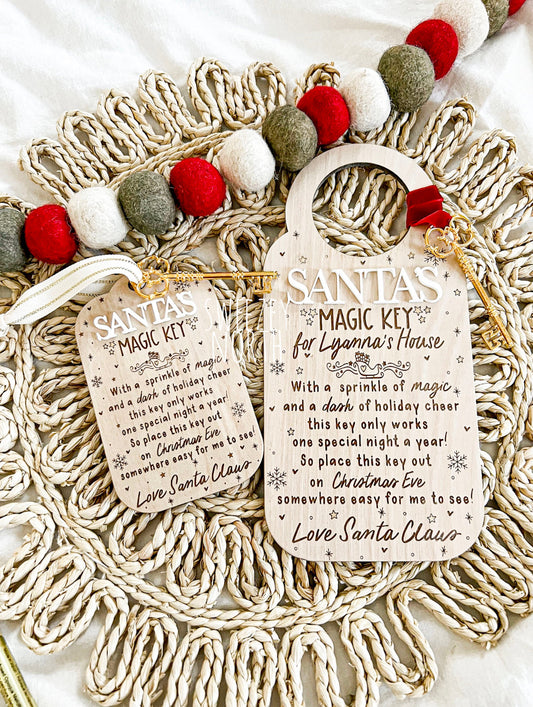 SANTA'S
MAGIC KEY
With a sprinkle of magic
and a dash of holiday cheer
this key only works
one special night a year!
So place this key out
on Christmas Eve
somewhere easy for me to see!
Love Santa Claus
SANTA'S
MAGIC KEY
for Lyanna's House
With a sprinkle of magic
and a dash of holiday cheer
this key only works
one special night a year!
So place this key out
on Christmas Eve
somewhere easy for me to see!
Love Santa Claus